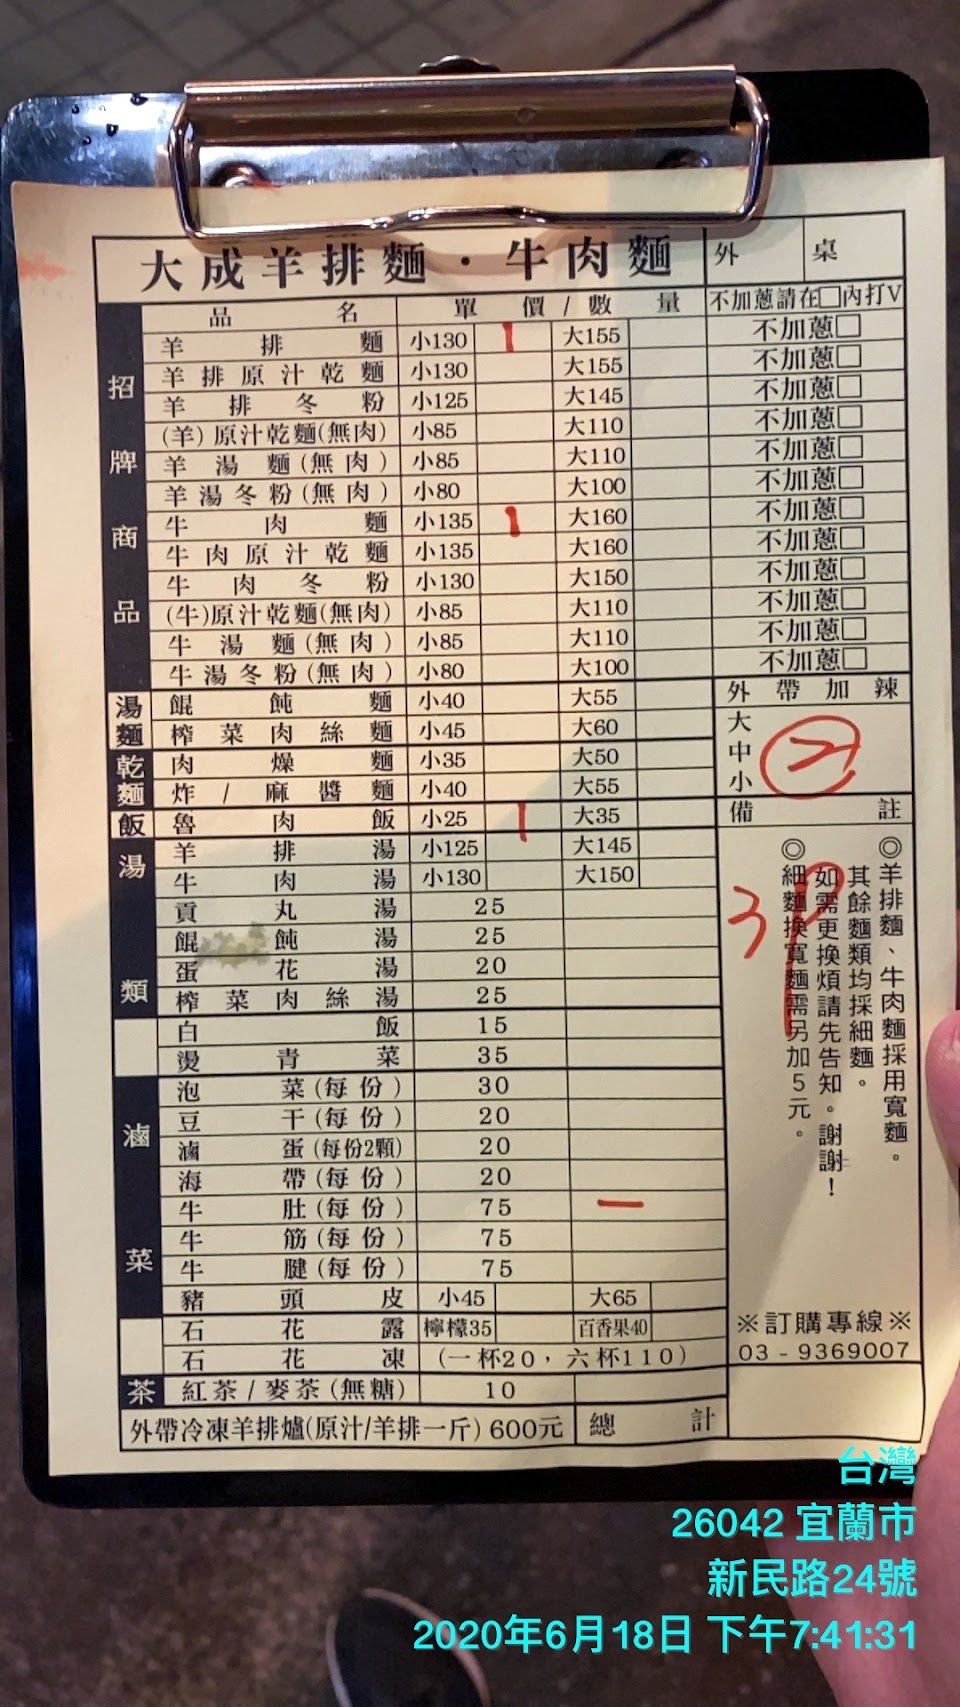 大成羊排麵・牛肉麵 外 桌
品名 單價/數量 不加蔥請在□內打V
招牌商品
羊排麵 小130 1 大155 不加蔥□
羊排原汁乾麵 小130 大155 不加蔥□
羊排冬粉 小125 大145 不加蔥□
(羊)原汁乾麵(無肉) 小85 大110 不加蔥□
羊湯麵(無肉) 小85 大110 不加蔥□
羊湯冬粉(無肉) 小80 大100 不加蔥□
牛肉麵 小135 1 大160 不加蔥□
牛肉原汁乾麵 小135 大160 不加蔥□
牛肉冬粉 小130 大150 不加蔥□
(牛)原汁乾麵(無肉) 小85 大110 不加蔥□
牛湯麵(無肉) 小85 大110 不加蔥□
牛湯冬粉(無肉) 小80 大100 不加蔥□
湯麵
餛飩麵 小40 大55
榨菜肉絲麵 小45 大60
乾麵
肉燥麵 小35 大50
炸/麻醬麵 小40 大55
飯
魯肉飯 小25 1 大35
湯類
羊排湯 小125 大145
牛肉湯 小130 大150
貢丸湯 25
餛飩湯 25
蛋花湯 20
榨菜肉絲湯 25
白飯 15
燙青菜 35
滷菜
泡菜(每份) 30
豆干(每份) 20
滷蛋(每份2顆) 20
海帶(每份) 20
牛肚(每份) 75 一
牛筋(每份) 75
牛腱(每份) 75
豬頭皮 小45 大65
石花露 檸檬35 百香果40
石花凍 (一杯20，六杯110)
茶
紅茶/麥茶(無糖) 10
外帶冷凍羊排爐(原汁/羊排一斤)600元 總計
外帶加辣
大
中
小
備註
◎羊排麵、牛肉麵採用寬麵。
其餘麵類均採細麵。
如需更換煩請先告知。謝謝！
◎細麵換寬麵需另加5元。
3P
※訂購專線※
03-9369007
台灣
26042 宜蘭市
新民路24號
2020年6月18日 下午7:41:31